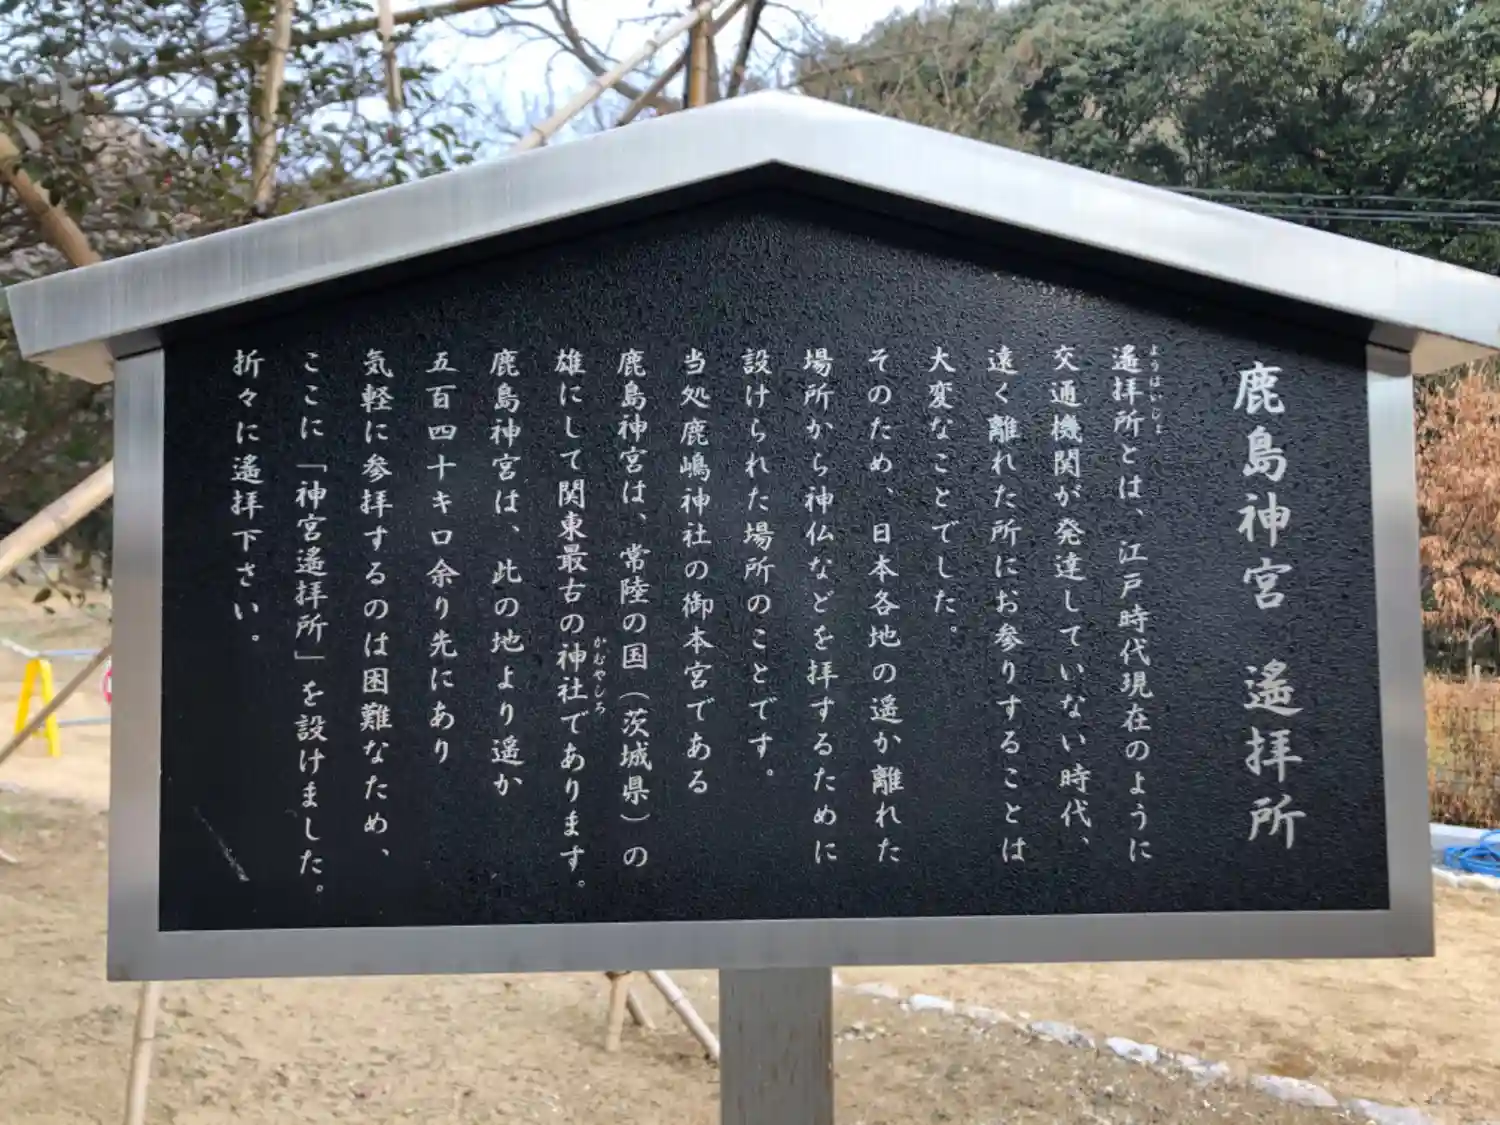 鹿島神宮 遙拝所
遙拝所とは、江戸時代現在のように
ようはいしょ
交通機関が発達していない時代、
遠く離れた所にお参りすることは
大変なことでした。
そのため、日本各地の遥か離れた
場所から神仏などを拝するために
設けられた場所のことです。
当処鹿嶋神社の御本宮である
鹿島神宮は、常陸の国（茨城県）の
雄にして関東最古の神社であります。
かむやしろ
鹿島神宮は、此の地より遥か
五百四十キロ余り先にあり
気軽に参拝するのは困難なため、
ここに「神宮遙拝所」を設けました。
折々に遙拝下さい。